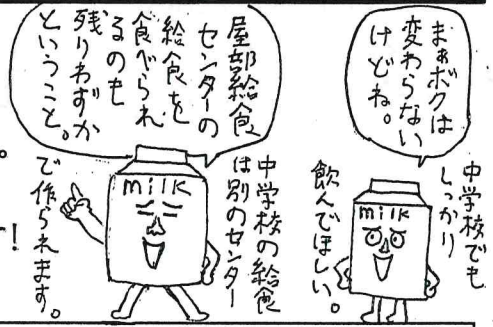 まぁボクは
変わらない
けどね。
milk
中学校でも
しっかり
飲んでほしい。
屋部給食
センターの
給食を
食べられ
るのも
残りわずか
ということ。
milk
中学校の給食
は別のセンター
で作られます。